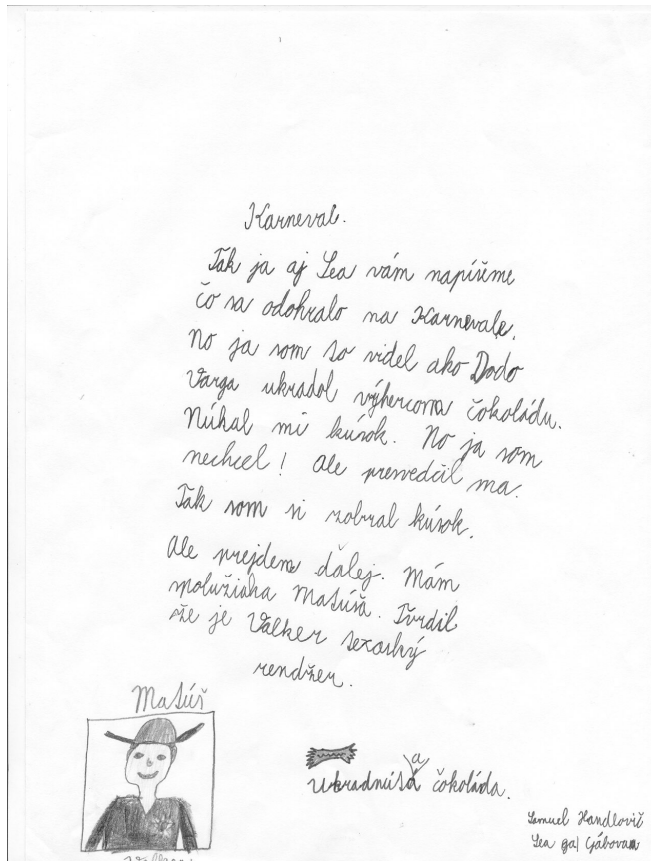 Karneval.
Tak ja aj Lea vám napíšeme
čo sa odohralo na Karnevale.
No ja som so videl ako Dodo
Varga ukradol výhercom čokoládu.
Núhal mi kúsok. No ja som
nechcel! Ale presvedčil ma.
Tak som si zobral kúsok.
Ale prejdem ďalej. Mám
spolužiaka Matúša. Tvrdil
že je Valker texaský
rendžer.
Matúš
Ukradnutá čokoláda.
a
Samuel Handlovič
Lea